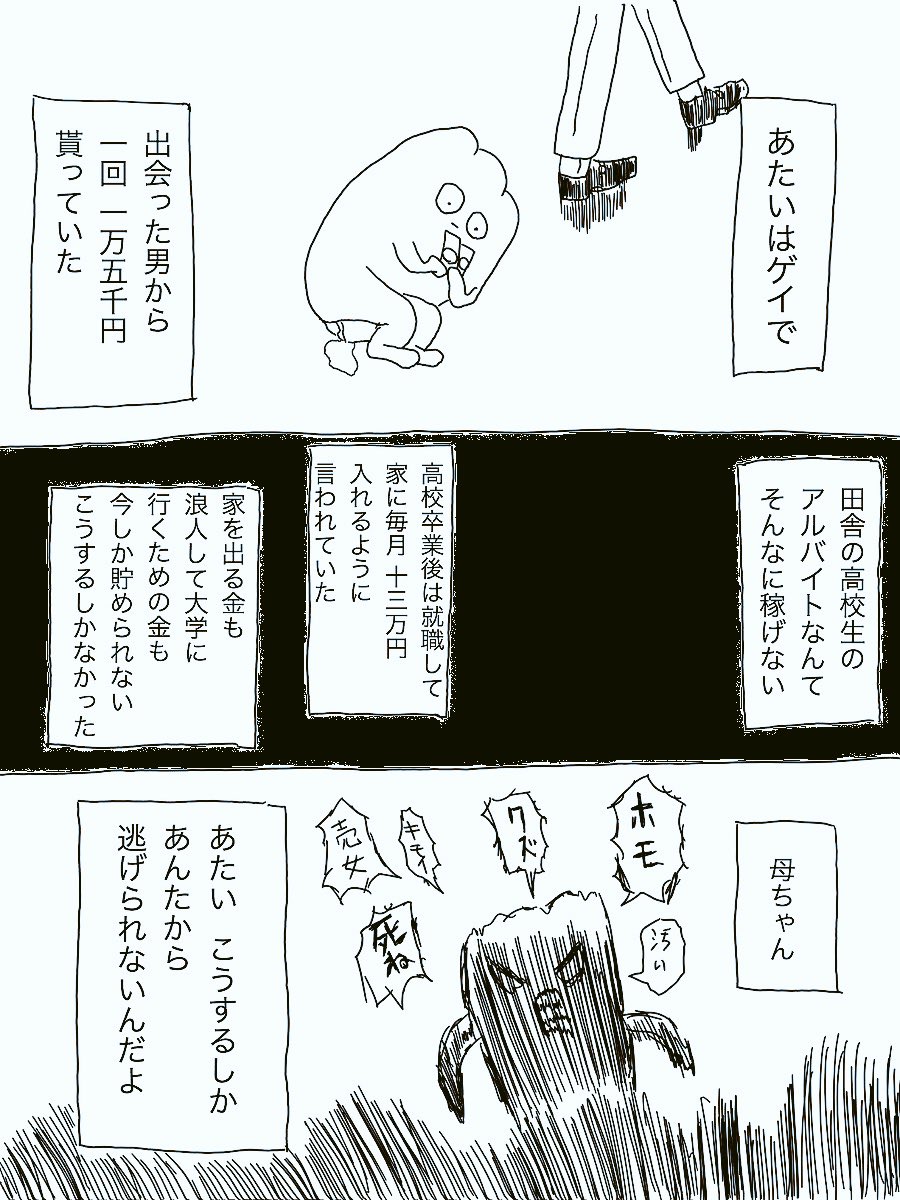 あたいはゲイで
出会った男から
一回 一万五千円
貰っていた
田舎の高校生の
アルバイトなんて
そんなに稼げない
高校卒業後は就職して
家に毎月 十三万円
入れるように
言われていた
家を出る金も
浪人して大学に
行くための金も
今しか貯められない
こうするしかなかった
母ちゃん
ホモ
汚い
クズ
キモイ
売女
死ね
あたい こうするしか
あんたから
逃げられないんだよ